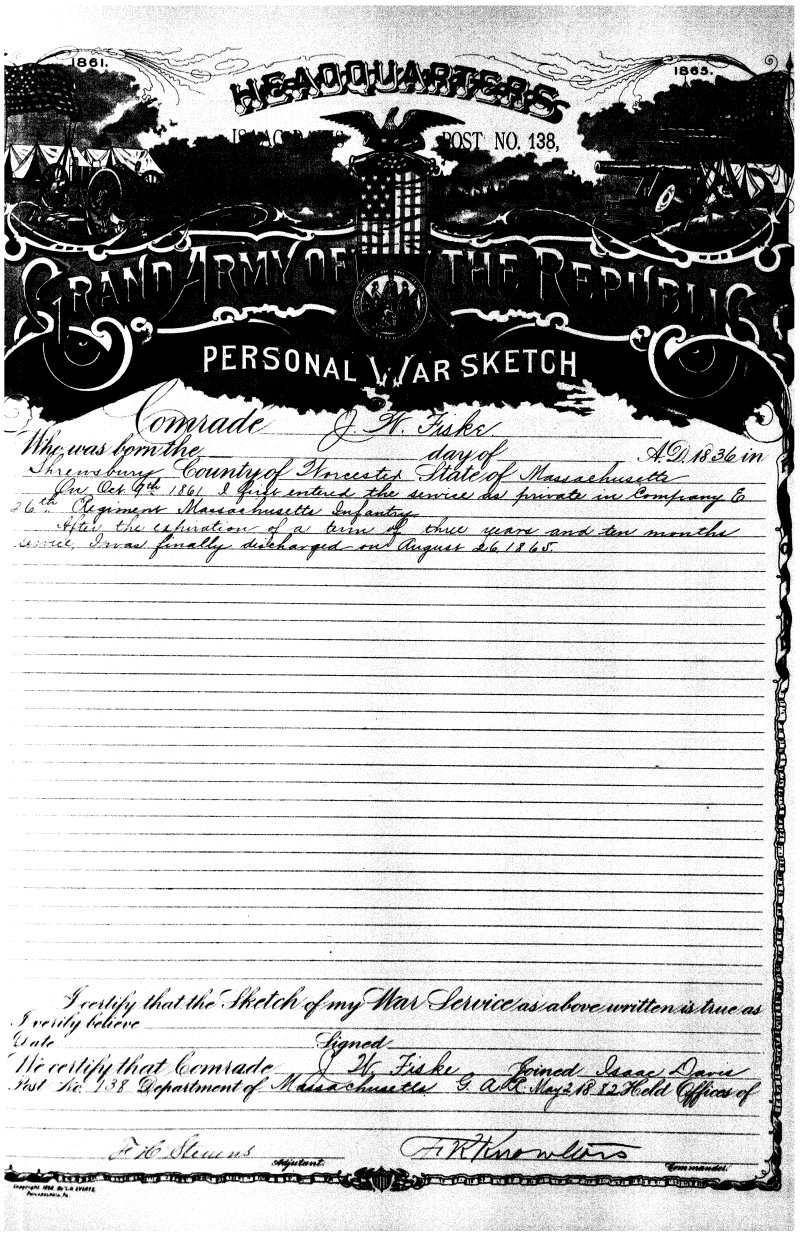 1861.
1865.
HEADQUARTERS
ISAAC DAVIS POST NO. 138,
GRAND ARMY OF THE REPUBLIC
PERSONAL WAR SKETCH
Comrade J. W. Fiske
Who was born the day of A.D. 1836 in
Shrewsbury County of Worcester State of Massachusetts
On Oct 9th 1861 I first entered the service as private in Company E
26th Regiment Massachusetts Infantry
After the expiration of a term of three years and ten months
service, I was finally discharged on August 26 1865.
I certify that the Sketch of my War Service as above written is true as
I verily believe
Date Signed
We certify that Comrade J W Fiske Joined Isaac Davis
Post No. 138 Department of Massachusetts G.A.R. May 2 1882 Held Offices of
F H Stevens Adjutant. Knowlton Commander.
Copyright By L.H. EVERTS
PHILADELPHIA, PA.